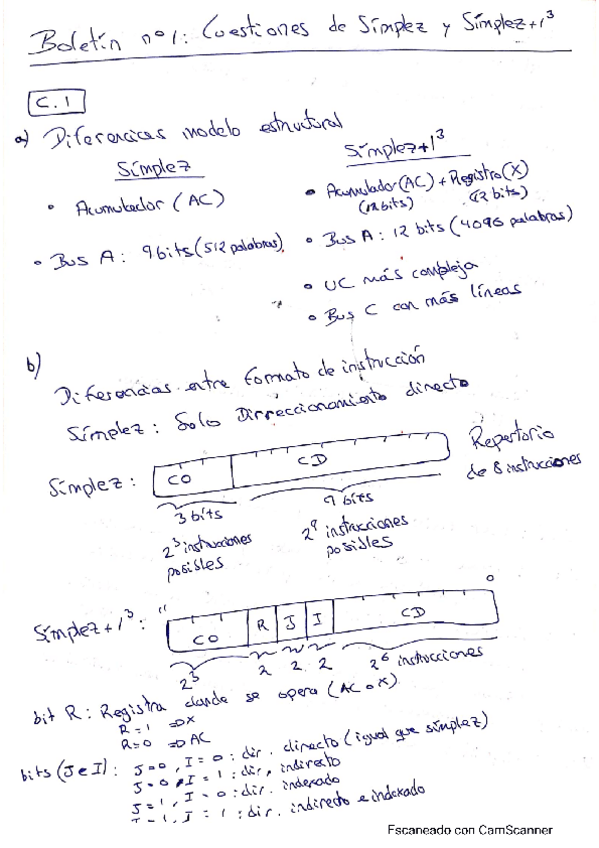 Boletín nº1: Cuestiones de Símplez y Símplez+i³
C.1
a) Diferencias modelo estructural
Símplez
Símplez+i³
• Acumulador (AC)
• Acumulador (AC) + Registro (X)
(12 bits) (12 bits)
• Bus A: 9 bits (512 palabras)
• Bus A: 12 bits (4096 palabras)
• UC más compleja
• Bus C con más líneas
b)
Diferencias entre formato de instrucción
Símplez: Solo Dirreccionamiento directo
Símplez: CO CD
Repertorio
de 8 instrucciones
3 bits 9 bits
2³ instrucciones
posibles
2⁹ instrucciones
posibles
Símplez+i³: 11 CO R J I CD 0
2³ 2 2 2 2⁶ instrucciones
bit R: Registra donde se opera (AC o X)
R=1 => X
R=0 => AC
bits (J e I): J=0, I=0: dir. directo (igual que símplez)
J=0, I=1: dir. indirecto
J=1, I=0: dir. indexado
J=1, I=1: dir. indirecto e indexado
Escaneado con CamScanner